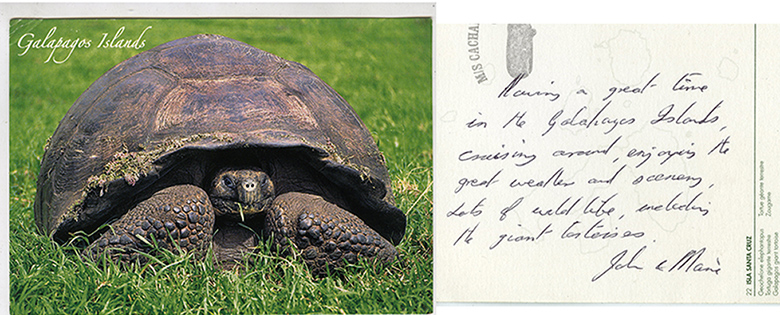 Galapagos Islands
MIS CACHA
Having a great time
in the Galapagos Islands,
cruising around, enjoying the
great weather and scenery,
Lots of wild life, including
the giant tortoises
John & Marie
22 ISLA SANTA CRUZ
Geochelone elephantopus
Tortuga gigante terrestre
Galapagos giant tortoise
Tortue géante terrestre